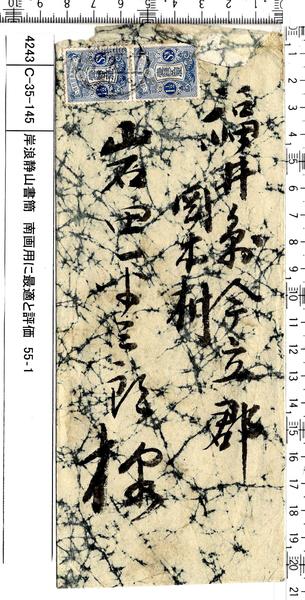 福井縣今立郡
岡本村
岩野平三郎様
4243 C-35-145 岸浪静山書簡 南画用に最適と評価 55-1